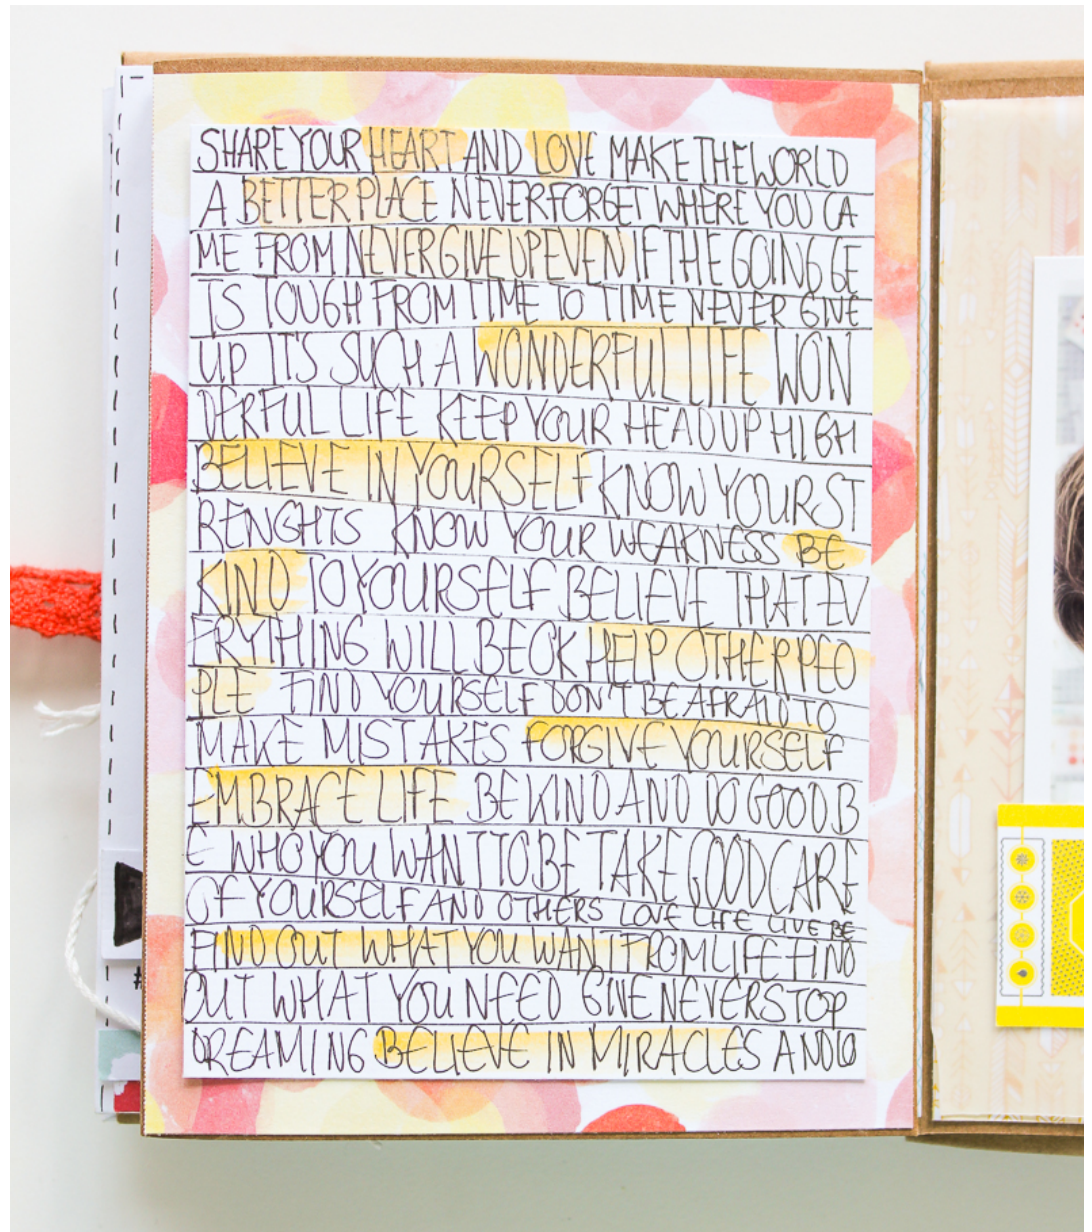 SHARE YOUR HEART AND LOVE MAKE THE WORLD
A BETTER PLACE NEVER FORGET WHERE YOU CA
ME FROM NEVER GIVE UP EVEN IF THE GOING GE
TS TOUGH FROM TIME TO TIME NEVER GIVE
UP IT'S SUCH A WONDERFUL LIFE WON
DERFUL LIFE KEEP YOUR HEAD UP HIGH
BELIEVE IN YOURSELF KNOW YOUR ST
RENGHTS KNOW YOUR WEAKNESS BE
KIND TO YOURSELF BELIEVE THAT EV
ERYTHING WILL BE OK HELP OTHER PEO
PLE FIND YOURSELF DON'T BE AFRAID TO
MAKE MISTAKES FORGIVE YOURSELF
EMBRACE LIFE BE KIND AND DO GOOD B
E WHO YOU WANT TO BE TAKE GOOD CARE
OF YOURSELF AND OTHERS LOVE LIFE LIVE BE
FIND OUT WHAT YOU WANT FROM LIFE FIND
OUT WHAT YOU NEED GIVE NEVER STOP
DREAMING BELIEVE IN MIRACLES AND